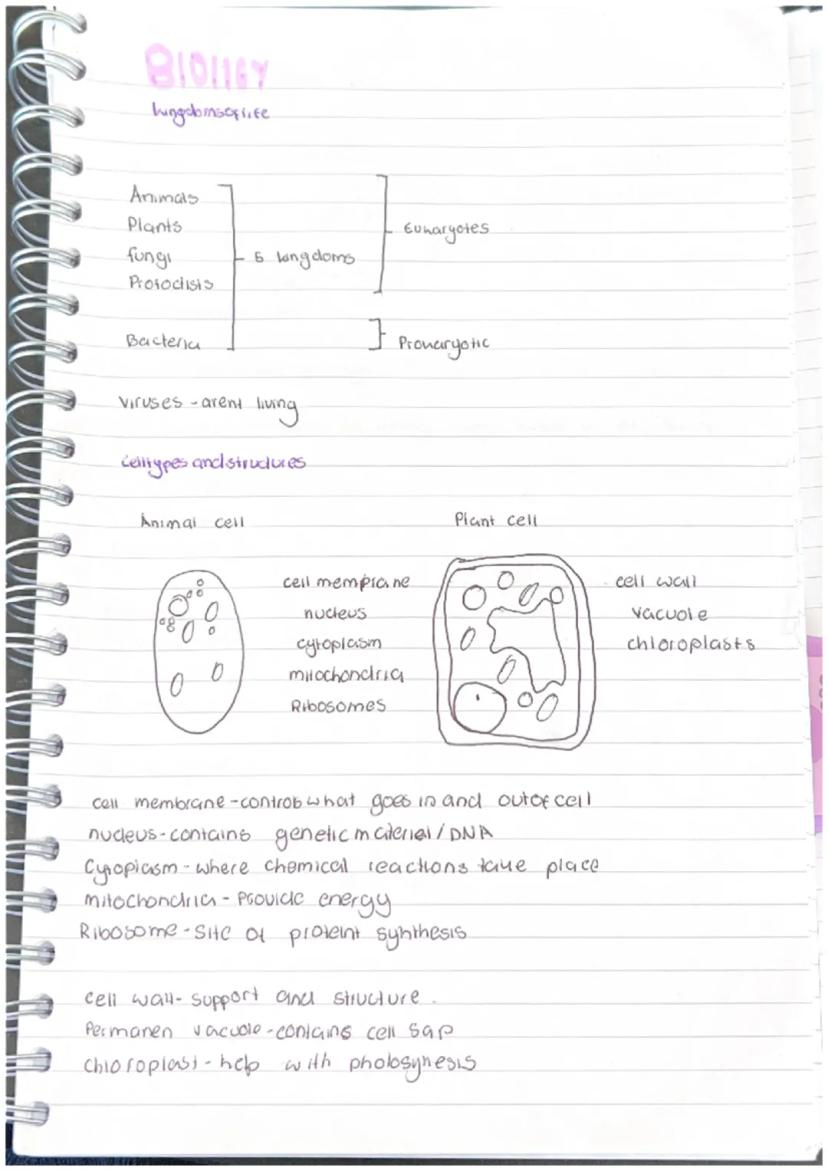 BIOlIGY
kingdoms of life
Animals
Plants
fungi
Protoctists
5 kingdoms
Eukaryotes
Bacteria
Prokaryotic
Viruses - arent living
Cell types and structures
Animal cell
Plant cell
cell membrane
nucleus
cytoplasm
mitochondria
Ribosomes
cell wall
vacuole
chloroplasts
cell membrane - controls what goes in and out of cell
nucleus - contains genetic material / DNA
Cytoplasm - where chemical reactions take place
mitochondria - Provide energy
Ribosome - Site of proteint synthesis
cell wall - support and structure.
Permanen vacuole - contains cell sap
Chloroplast - help with photosynesis